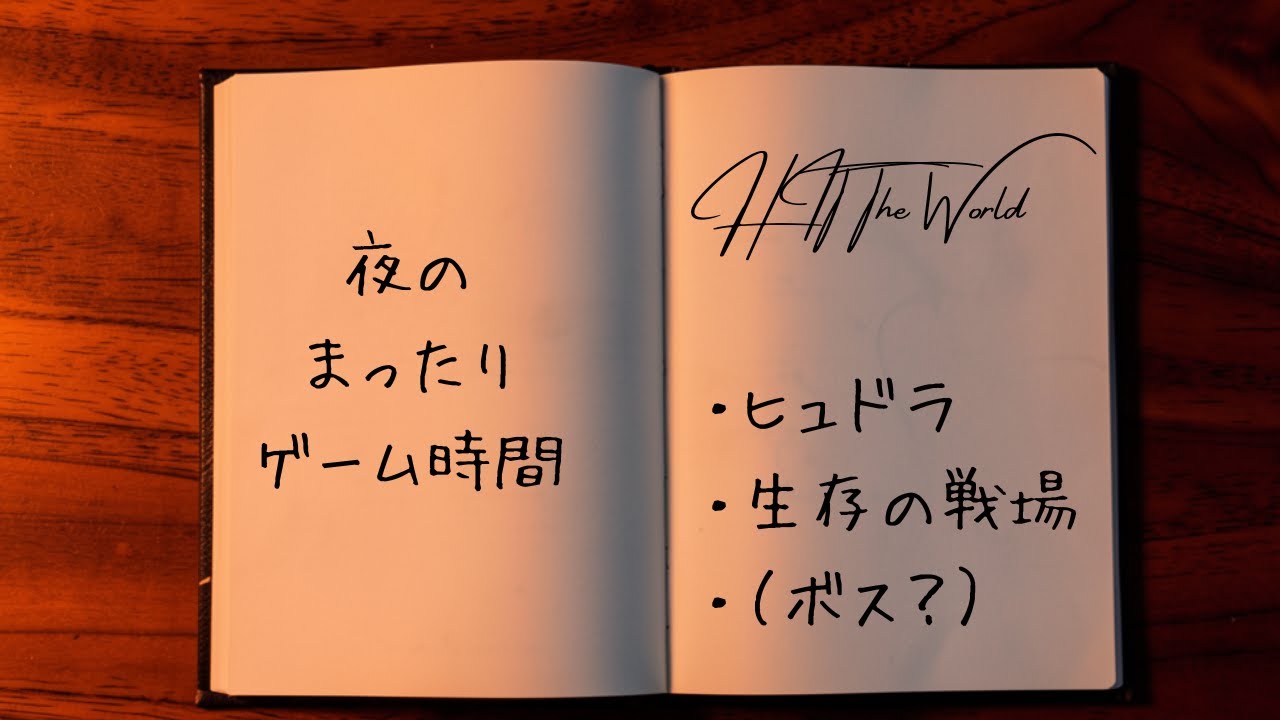 夜の
まったり
ゲーム時間
HIT The World
・ヒュドラ
・生存の戦場
・(ボス?)